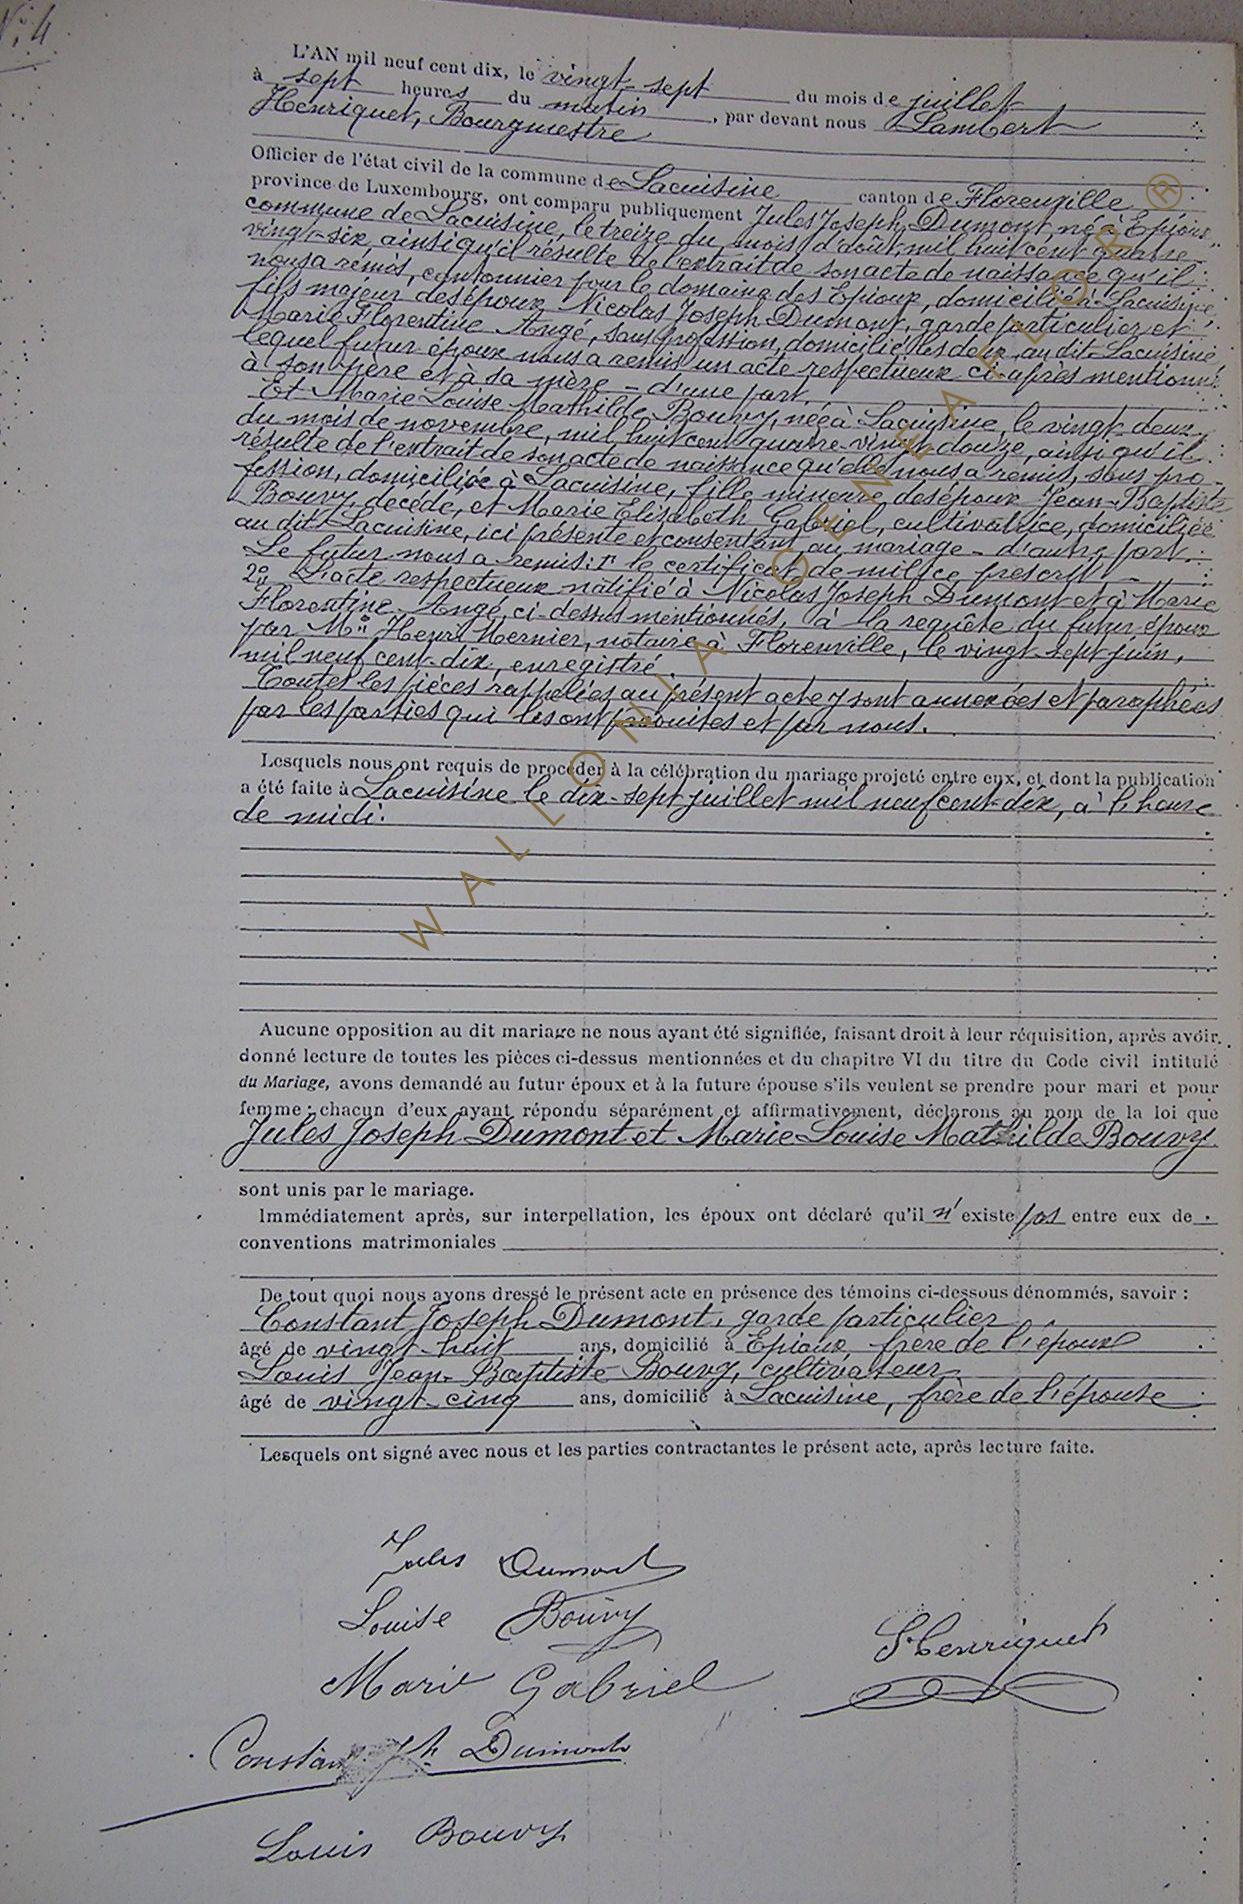 N° 4
L'AN mil neuf cent dix, le vingt-sept du mois de juillet
à sept heures du matin, par devant nous Lambert
Henriquet, Bourgmestre
Officier de l'état civil de la commune de Lacuisine canton de Florenville
province de Luxembourg, ont comparu publiquement Jules Joseph Dumont, né à Epioux,
commune de Lacuisine, le treize du mois d'août, mil huit cent quatre-
vingt-six, ainsi qu'il résulte de l'extrait de son acte de naissance qu'il
nous a remis, cantonnier pour le domaine des Epioux, domicilié à Lacuisine,
fils majeur des époux Nicolas Joseph Dumont, garde particulier et
Marie Florentine Augé, sans profession, domiciliés les deux au dit Lacuisine
lequel futur époux nous a remis un acte respectueux ci-après mentionné
à son père et à sa mère - d'une part.
Et Marie Louise Mathilde Bouvy, née à Lacuisine, le vingt-deux
du mois de novembre, mil huit cent quatre-vingt-douze, ainsi qu'il
résulte de l'extrait de son acte de naissance qu'elle nous a remis, sans pro-
fession, domiciliée à Lacuisine, fille mineure des époux Jean-Baptiste
Bouvy, décédé, et Marie Elisabeth Gabriel, cultivatrice, domiciliée
au dit Lacuisine, ici présente et consentant au mariage - d'autre part.
Le futur nous a remis: 1° le certificat de milice prescrit
2° L'acte respectueux notifié à Nicolas Joseph Dumont et à Marie
Florentine Augé, ci-dessus mentionnés, à la requête du futur époux
par Me Henri Mernier, notaire à Florenville, le vingt-sept juin,
mil neuf cent dix, enregistré.
Toutes les pièces rappelées au présent acte y sont annexées et paraphées
par les parties qui les ont produites et par nous.
Lesquels nous ont requis de procéder à la célébration du mariage projeté entre eux, et dont la publication
a été faite à Lacuisine le dix-sept juillet mil neuf cent dix, à l'heure
de midi.
Aucune opposition au dit mariage ne nous ayant été signifiée, faisant droit à leur réquisition, après avoir
donné lecture de toutes les pièces ci-dessus mentionnées et du chapitre VI du titre du Code civil intitulé
du Mariage, avons demandé au futur époux et à la future épouse s'ils veulent se prendre pour mari et pour
femme; chacun d'eux ayant répondu séparément et affirmativement, déclarons au nom de la loi que
Jules Joseph Dumont et Marie-Louise Mathilde Bouvy
sont unis par le mariage.
Immédiatement après, sur interpellation, les époux ont déclaré qu'il n'existe pas entre eux de
conventions matrimoniales
De tout quoi nous ayons dressé le présent acte en présence des témoins ci-dessous dénommés, savoir :
Constant Joseph Dumont, garde particulier
âgé de vingt-huit ans, domicilié à Epioux, frère de l'époux
Louis Jean-Baptiste Bouvy, cultivateur
âgé de vingt-cinq ans, domicilié à Lacuisine, frère de l'épouse
Lesquels ont signé avec nous et les parties contractantes le présent acte, après lecture faite.
Jules Dumont
Louise Bouvy
L. Henriquet
Marie Gabriel
Constant Jh Dumont
Louis Bouvy
WALLONIA.GENEAFLOR ®